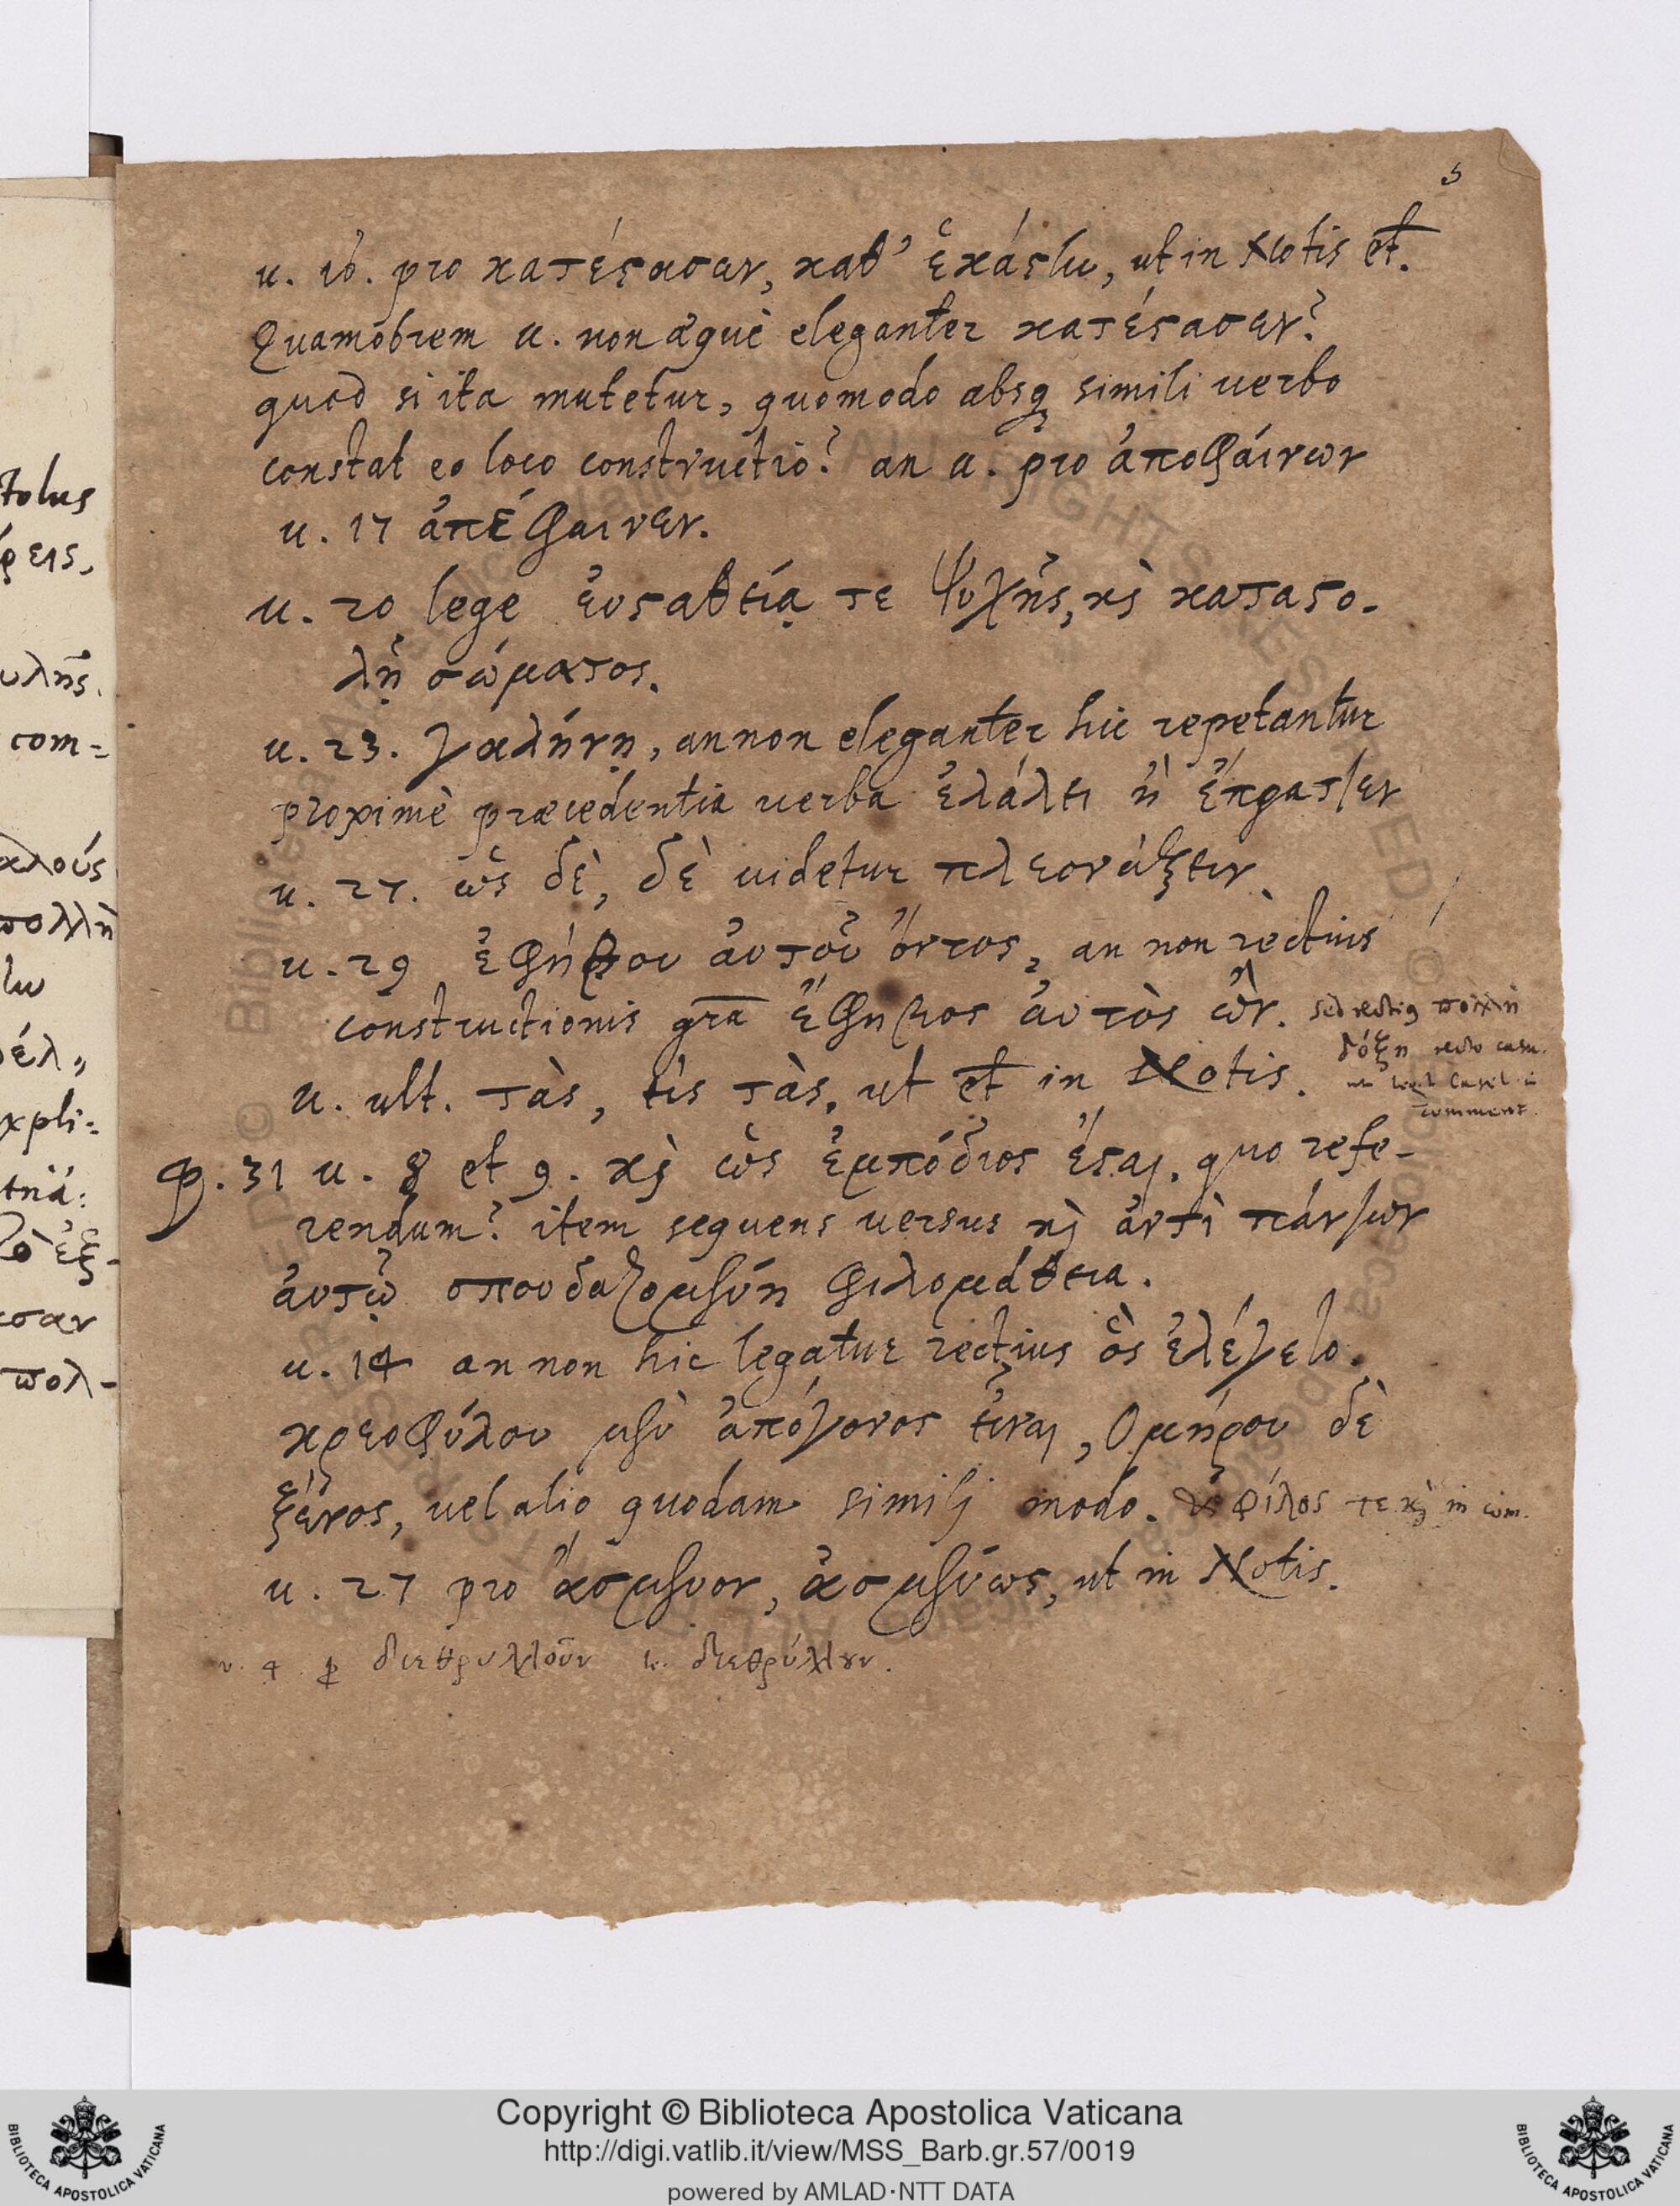 5
u. 16. pro κατέςασεν, καθ' ἑκάςην, ut in Notis et̄.
Quamobrem u. non æque eleganter κατέςασεν?
quod si ita mutetur, quomodo absq simili uerbo
constat eo loco constructio? an u. pro ἀποφαίνων
u. 17 ἀπέφαινεν.
u. 20 lege ἐυςαθείᾳ τε ψυχῆς, κὶ καταςο-
λῇ σώματος.
u. 23. γαλήνῃ, annon eleganter hic repetantur
proximè præcedentia uerba ἐλάλει ἢ ἔπραττεν
u. 27. ὡς δὲ, δὲ uidetur πλεονάζειν.
u. 29 ἐφήβου ἀυτοῦ ὄντος, an non rectius
constructionis gr̄a ἔφηβος ἀυτὸς ὢν. sed rectius πολλὴ
δόξη recto casu.
comment.
u. ult. τὰς, εἰς τὰς, ut et̄ in Notis.
φ. 31 u. 8 et 9. κὶ ὡς ἐμπόδιος ἔςαι. quo refe-
rendum? item sequens uersus κὶ ἀντὶ πάντων
ἀυτῷ σπουδαζομένη φιλομάθεια.
u. 14 an non hic legatur rectius ὃς ἐλέγετο.
κρεοφύλου μὲν ἀπόγονος εἶναι, Ομήρου δὲ
ξένος, uel alio quodam simili modo. φίλος τε κὶ in com.
u. 27 pro ἄσμενον, ἀσμένως, ut in Notis.
u. 4. p διεθρυλλοῦν διεθρύλλουν.
tolus
ρεις,
υλῆς.
com=
αλούς
πολλὴ
έλ,,
xpli:
τηὰ:
ἐξ-
σαν
πολ-
© Biblioteca Apostolica Vaticana ALL RIGHTS RESERVED
Copyright © Biblioteca Apostolica Vaticana
http://digi.vatlib.it/view/MSS_Barb.gr.57/0019
powered by AMLAD·NTT DATA
BIBLIOTECA APOSTOLICA VATICANA
BIBLIOTECA APOSTOLICA VATICANA